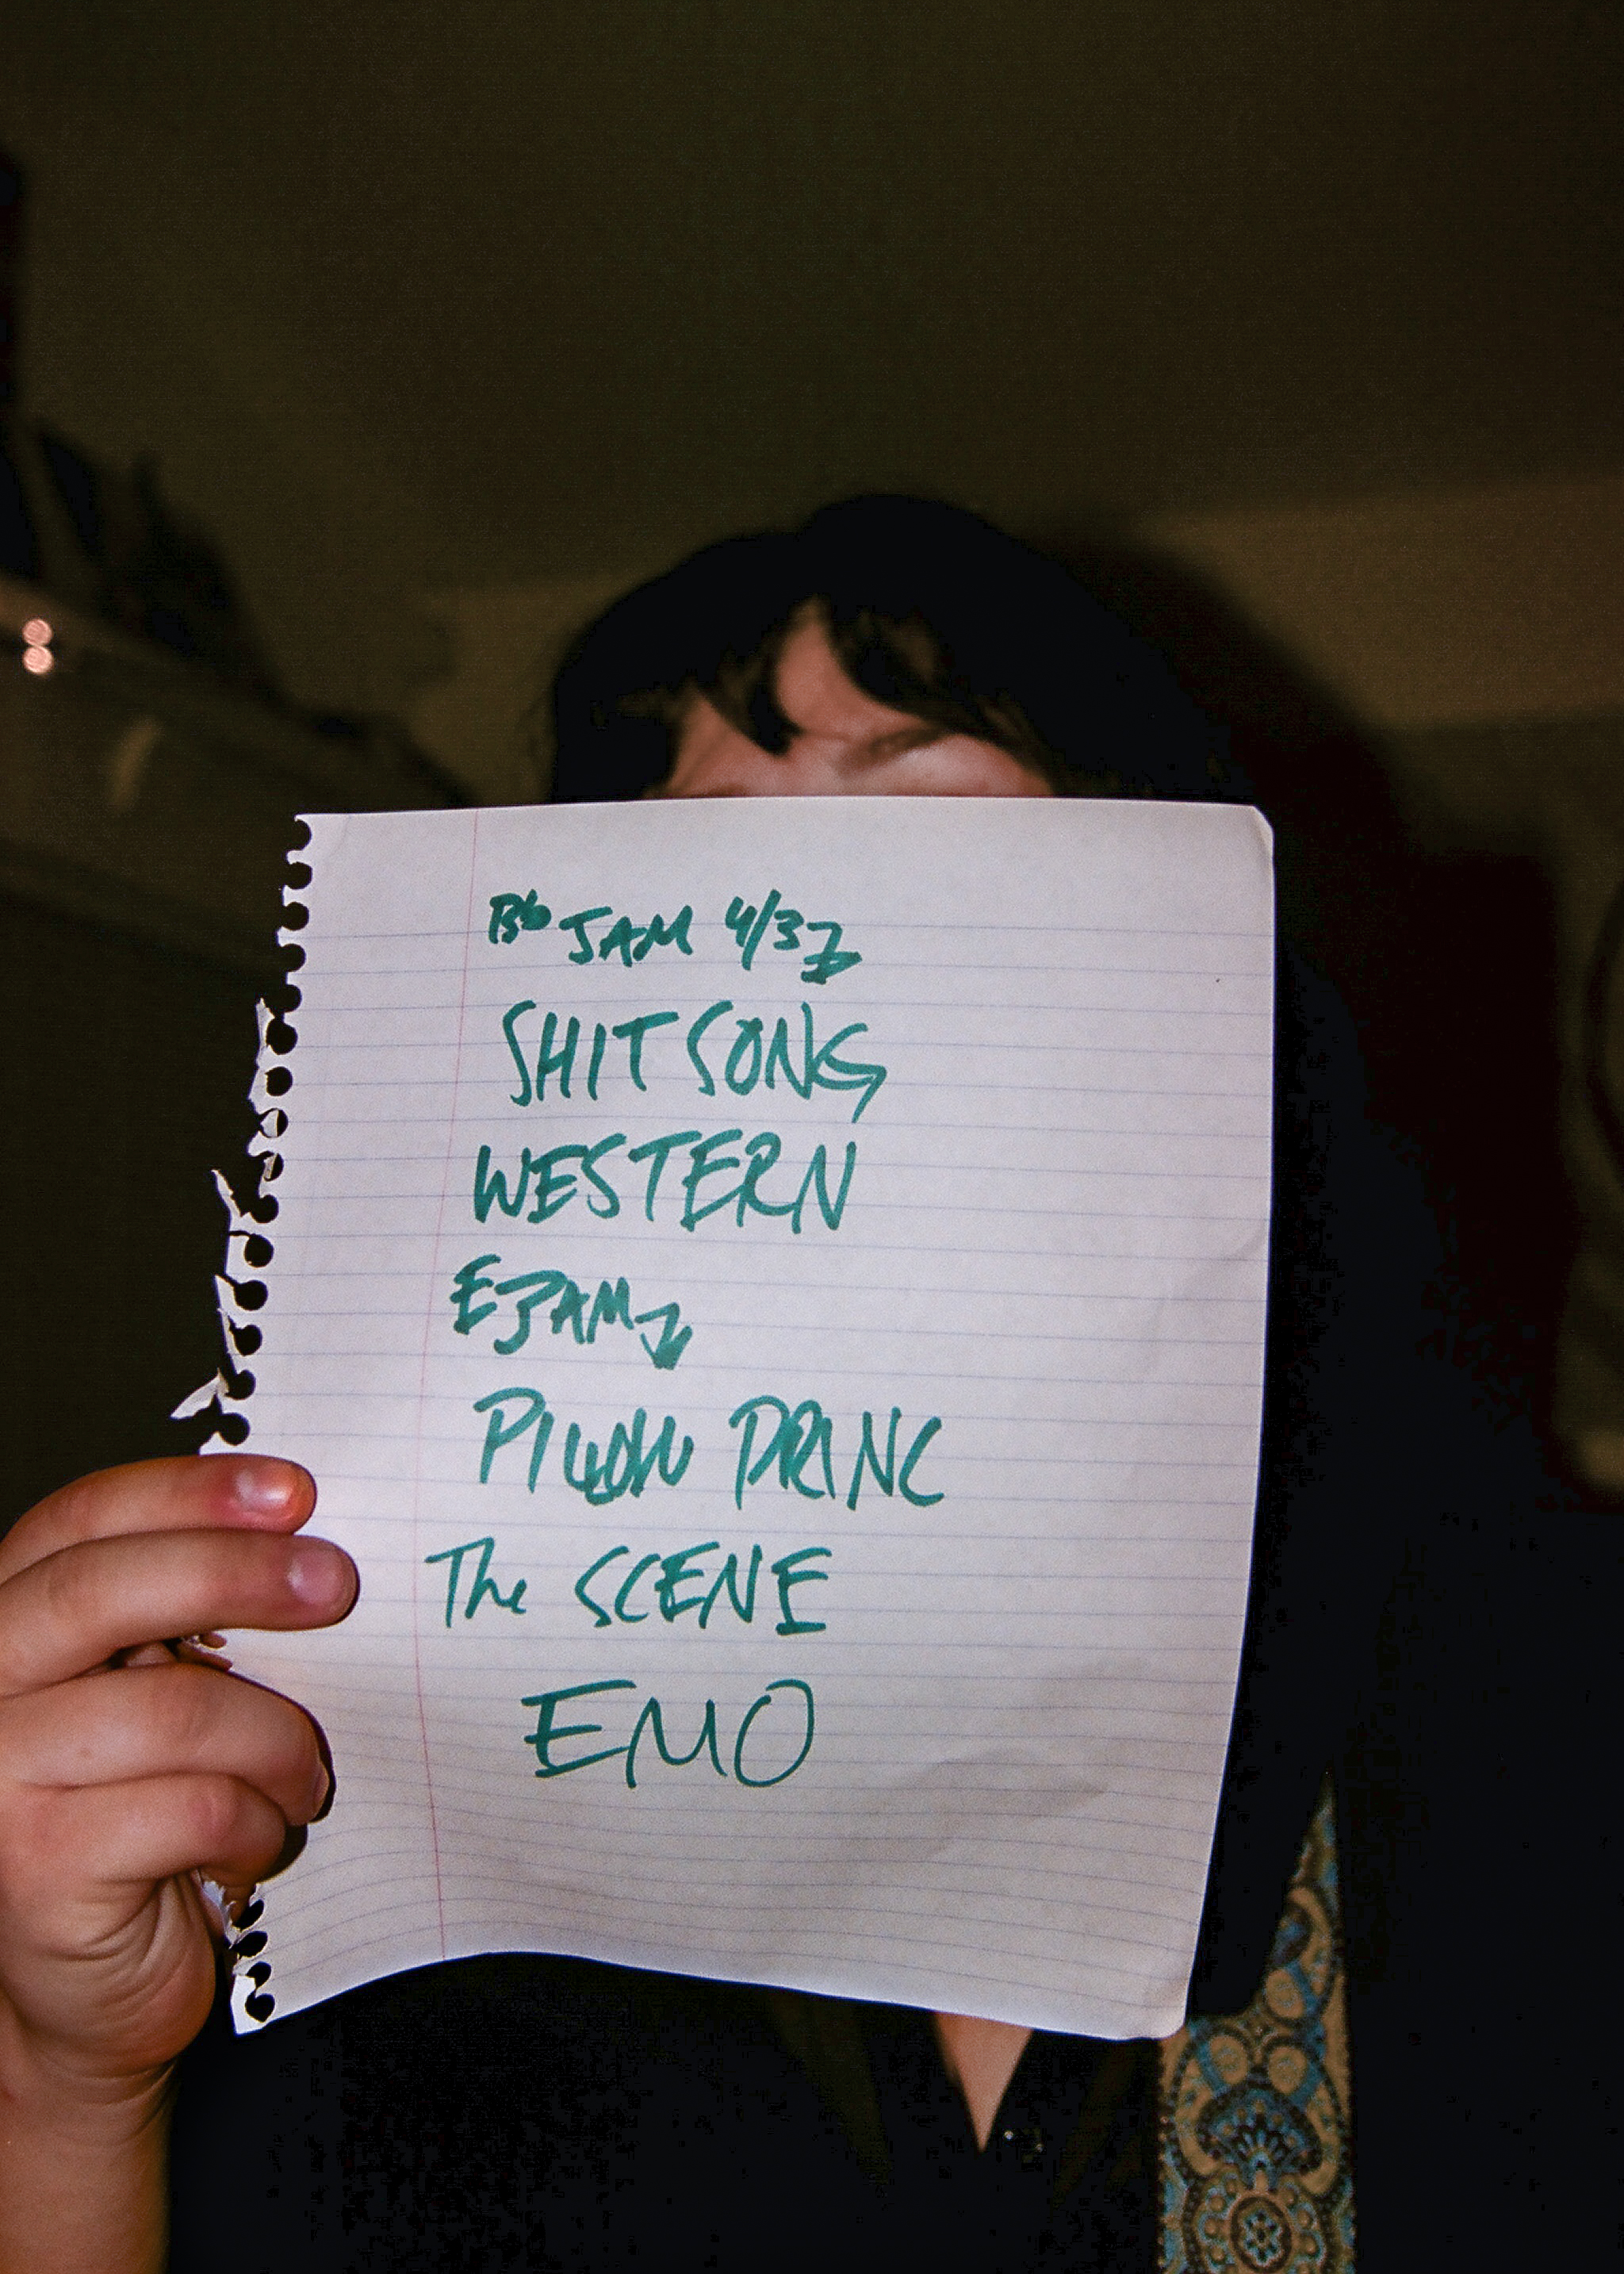 Bb JAM 4/3
SHIT SONG
WESTERN
E JAM
PILLOW PRINC
The SCENE
EMO